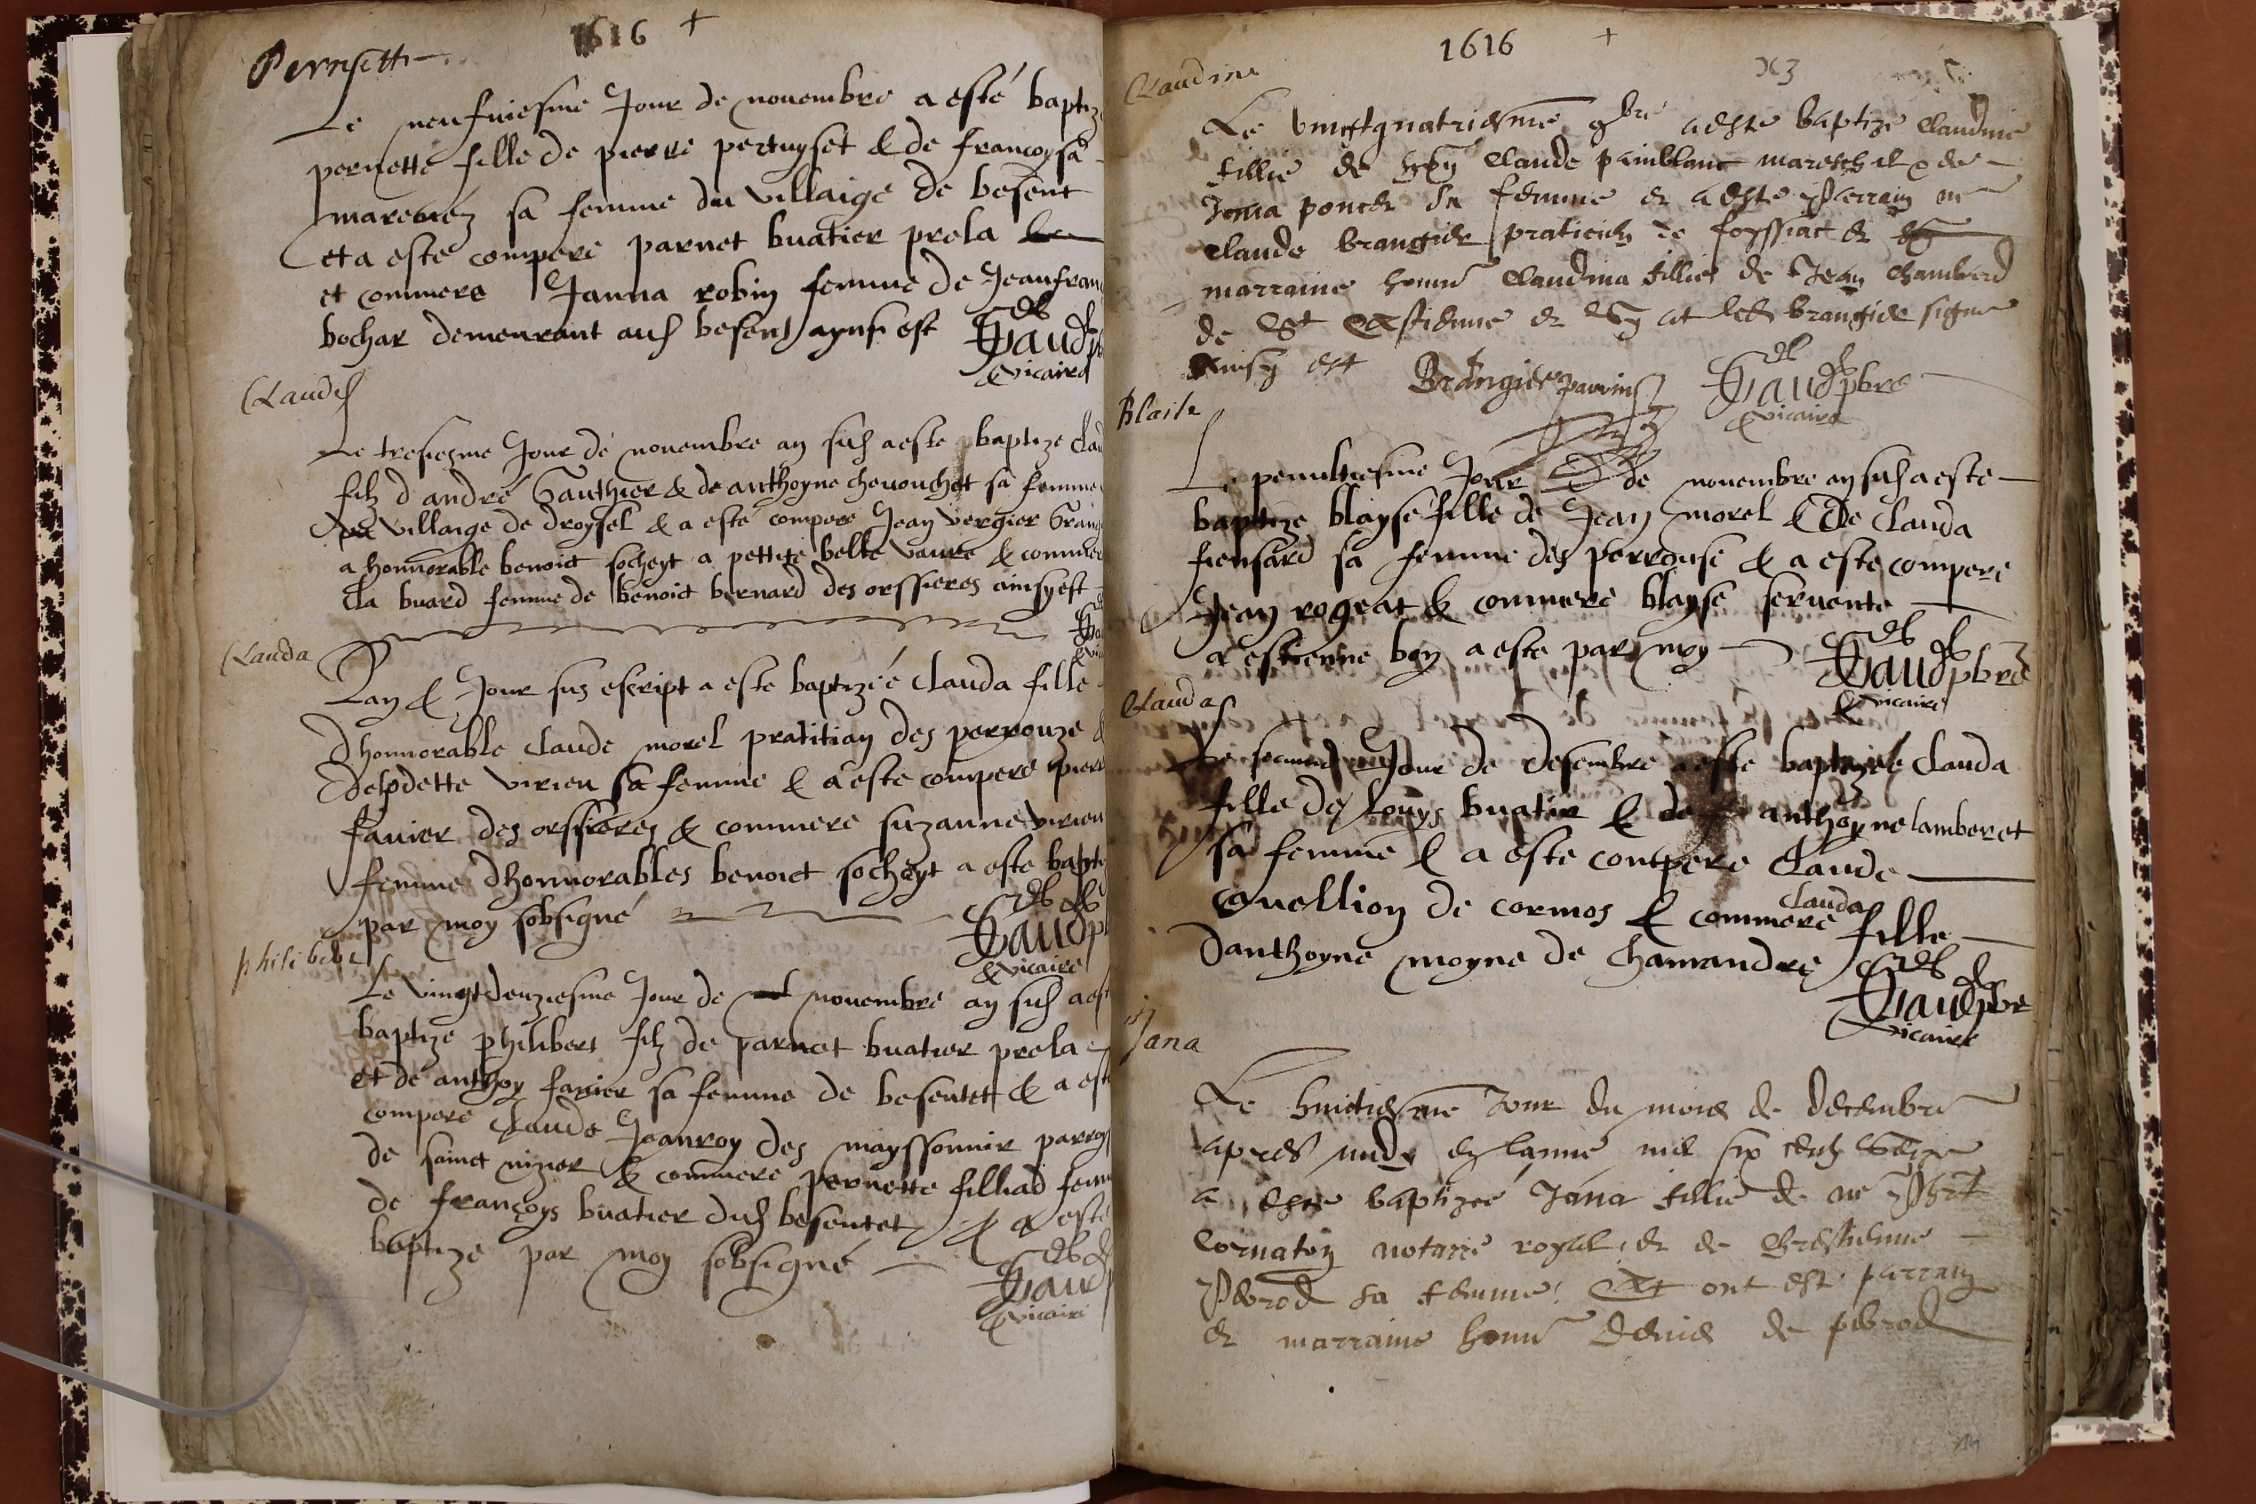 1616 +
Pernette
Le neufuiesme Jour de nouembre a esté baptiz
pernette fille de pierre pertuyset & de françoysa
sa femme du villaige de besent
et a esté compere parnet buatier prela
et commere Janna robin femme de Jeanfran
bochar demeurant aud besent aynsi est
Gaud pb
vicaire
Claude
Le tresiesme Jour de nouembre an susd a este baptize Clau
filz d andre Gauthier & de anthoyne chenouchet sa femme
villaige de droysel & a este compere Jean vergier Grang
a honnorable benoict socheyt a pettite belle vaure & commere
Cla buard femme de benoict bernard des orssieres ainsy est
Clauda
Lan & Jour sus escript a este baptizéé Clauda fille
dhonnorable Claude morel pratitian des perrouze &
virieu sa femme & a este compere pierr
fauier des orssieres & commere suzanne virieu
femme dhonnorables benoict socheyt a este bapti
par moy sobsigné
Gaud pb
vicaire
philibert
Le vingtdeuziesme Jour de nouembre an susd a est
baptize philibert filz de parnet buatier prela
et de anthoy fauier sa femme de besentet & a est
compere Claude Jeanroy des mayssonnir parro
de sainct nizier & commere pernette filliad fem
de françoys buatier dud besentet & a esté
baptize par moy sobsigné
Gaud
vicaire
1616 +
Claudine
Le vingtquatriesme 9bre a este baptize Claudine
fillie de Claude painblanc mareschal & de
Jema poncet sa femme et a este parrain me
Claude brangier praticien de foyssiat et
marraine honne Claudina fillie de Jean Chambard
de St Estienne et led brangier signe
Ainsy est Brangier parrin Gaud pbre
vicaire
Blaise
Le penultiesme Jour de nouembre an susd a este
baptize blayse fille de Jean morel & de Clauda
fiensard sa femme des perrouse & a este compere
Jean rogeat & commere blayse seruante
a estienne boy a este par moy
Gaud pbre
vicaire
Clauda
Le second Jour de desembre a este baptizéé Clauda
fille de Louys buatier & de anthoyne lamberet
sa femme & a este compere Claude
quellion de cormos & commere Clauda fille
danthoyne moyne de Chamandre
Gaud pbre
vicaire
Jana
Le huictiesme Jour du mois de decembre
apres midy en lanne mil six centz seize
a este baptizéé Jana fillie de me
Cornaton notaire royal et de Estienne
Pobrod sa femme Et ont esté parrain
et marraine honne denis de pobrod